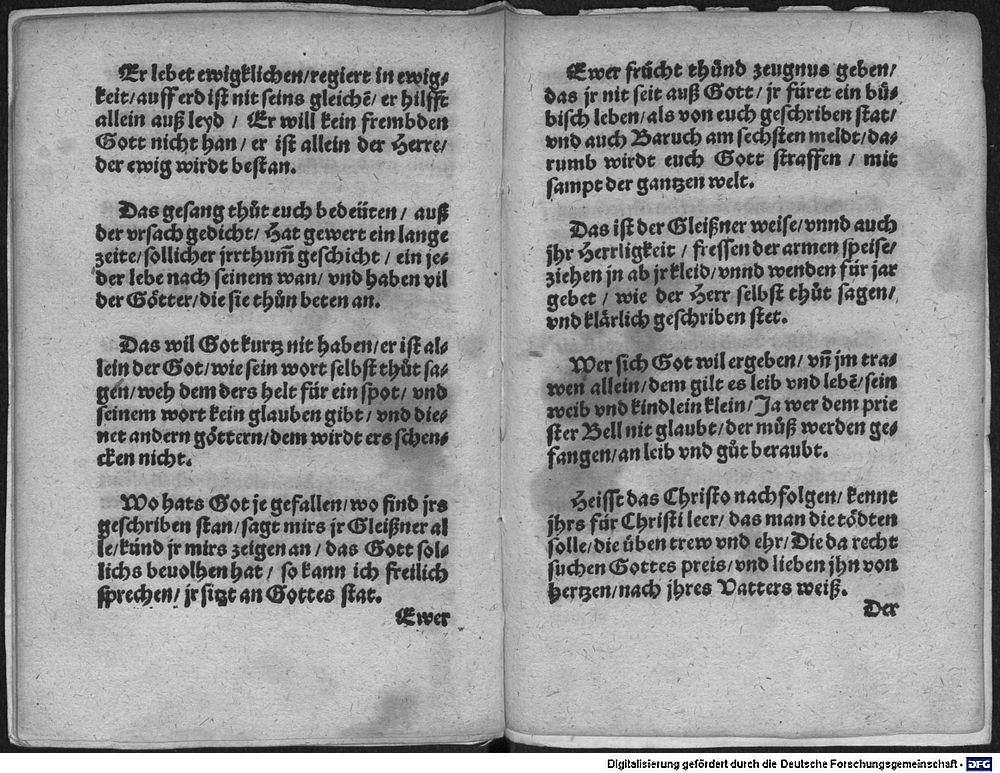 Er lebet ewigklichen/regiert in ewig-
keit/auff erd ist nit seins gleichẽ/ er hilfft
allein auß leyd / Er will kein frembden
Gott nicht han/ er ist allein der Herre/
der ewig wirdt bestan.
Das gesang thůt euch bedeüten/ auß
der vrsach gedicht/ Hat gewert ein lange
zeite/sollicher jrrthum̃ geschicht / ein je-
der lebe nach seinem wan/ vnd haben vil
der Götter/die sie thůn beten an.
Das wil Got kurtz nit haben/er ist al-
lein der Got/wie sein wort selbst thůt sa-
gen/weh dem ders helt für ein spot/ vnd
seinem wort kein glauben gibt/ vnd die-
net andern göttern/dem wirdt ers schen-
cken nicht.
Wo hats Got je gefallen/wo find jrs
geschriben stan/sagt mirs jr Gleißner al
le/künd jr mirs zeigen an/ das Gott sol-
lichs beuolhen hat/ so kann ich freilich
sprechen/ jr sitzt an Gottes stat.
Ewer
Ewer frücht thůnd zeugnus geben/
das jr nit seit auß Gott/ jr füret ein bü-
bisch leben/als von euch geschriben stat/
vnd auch Baruch am sechsten meldt/da-
rumb wirdt euch Gott straffen / mit
sampt der gantzen welt.
Das ist der Gleißner weise/vnnd auch
jhr Herrligkeit / fressen der armen speise/
ziehen jn ab jr kleid/vnnd wenden für jar
gebet / wie der Herr selbst thůt sagen/
vnd klärlich geschriben stet.
Wer sich Got wil ergeben/ vñ jm tra-
wen allein/dem gilt es leib vnd lebẽ/sein
weib vnd kindlein klein/Ja wer dem prie
ster Bell nit glaubt/der můß werden ge-
fangen/an leib vnd gůt beraubt.
Heisst das Christo nachfolgen/ kennt
jhrs für Christi leer/das man die tödten
solle/die üben trew vnd ehr/Die da recht
suchen Gottes preis/vnd lieben jhn von
hertzen/nach jhres Vatters weiß.
Der
Digitalisierung gefördert durch die Deutsche Forschungsgemeinschaft - DFG